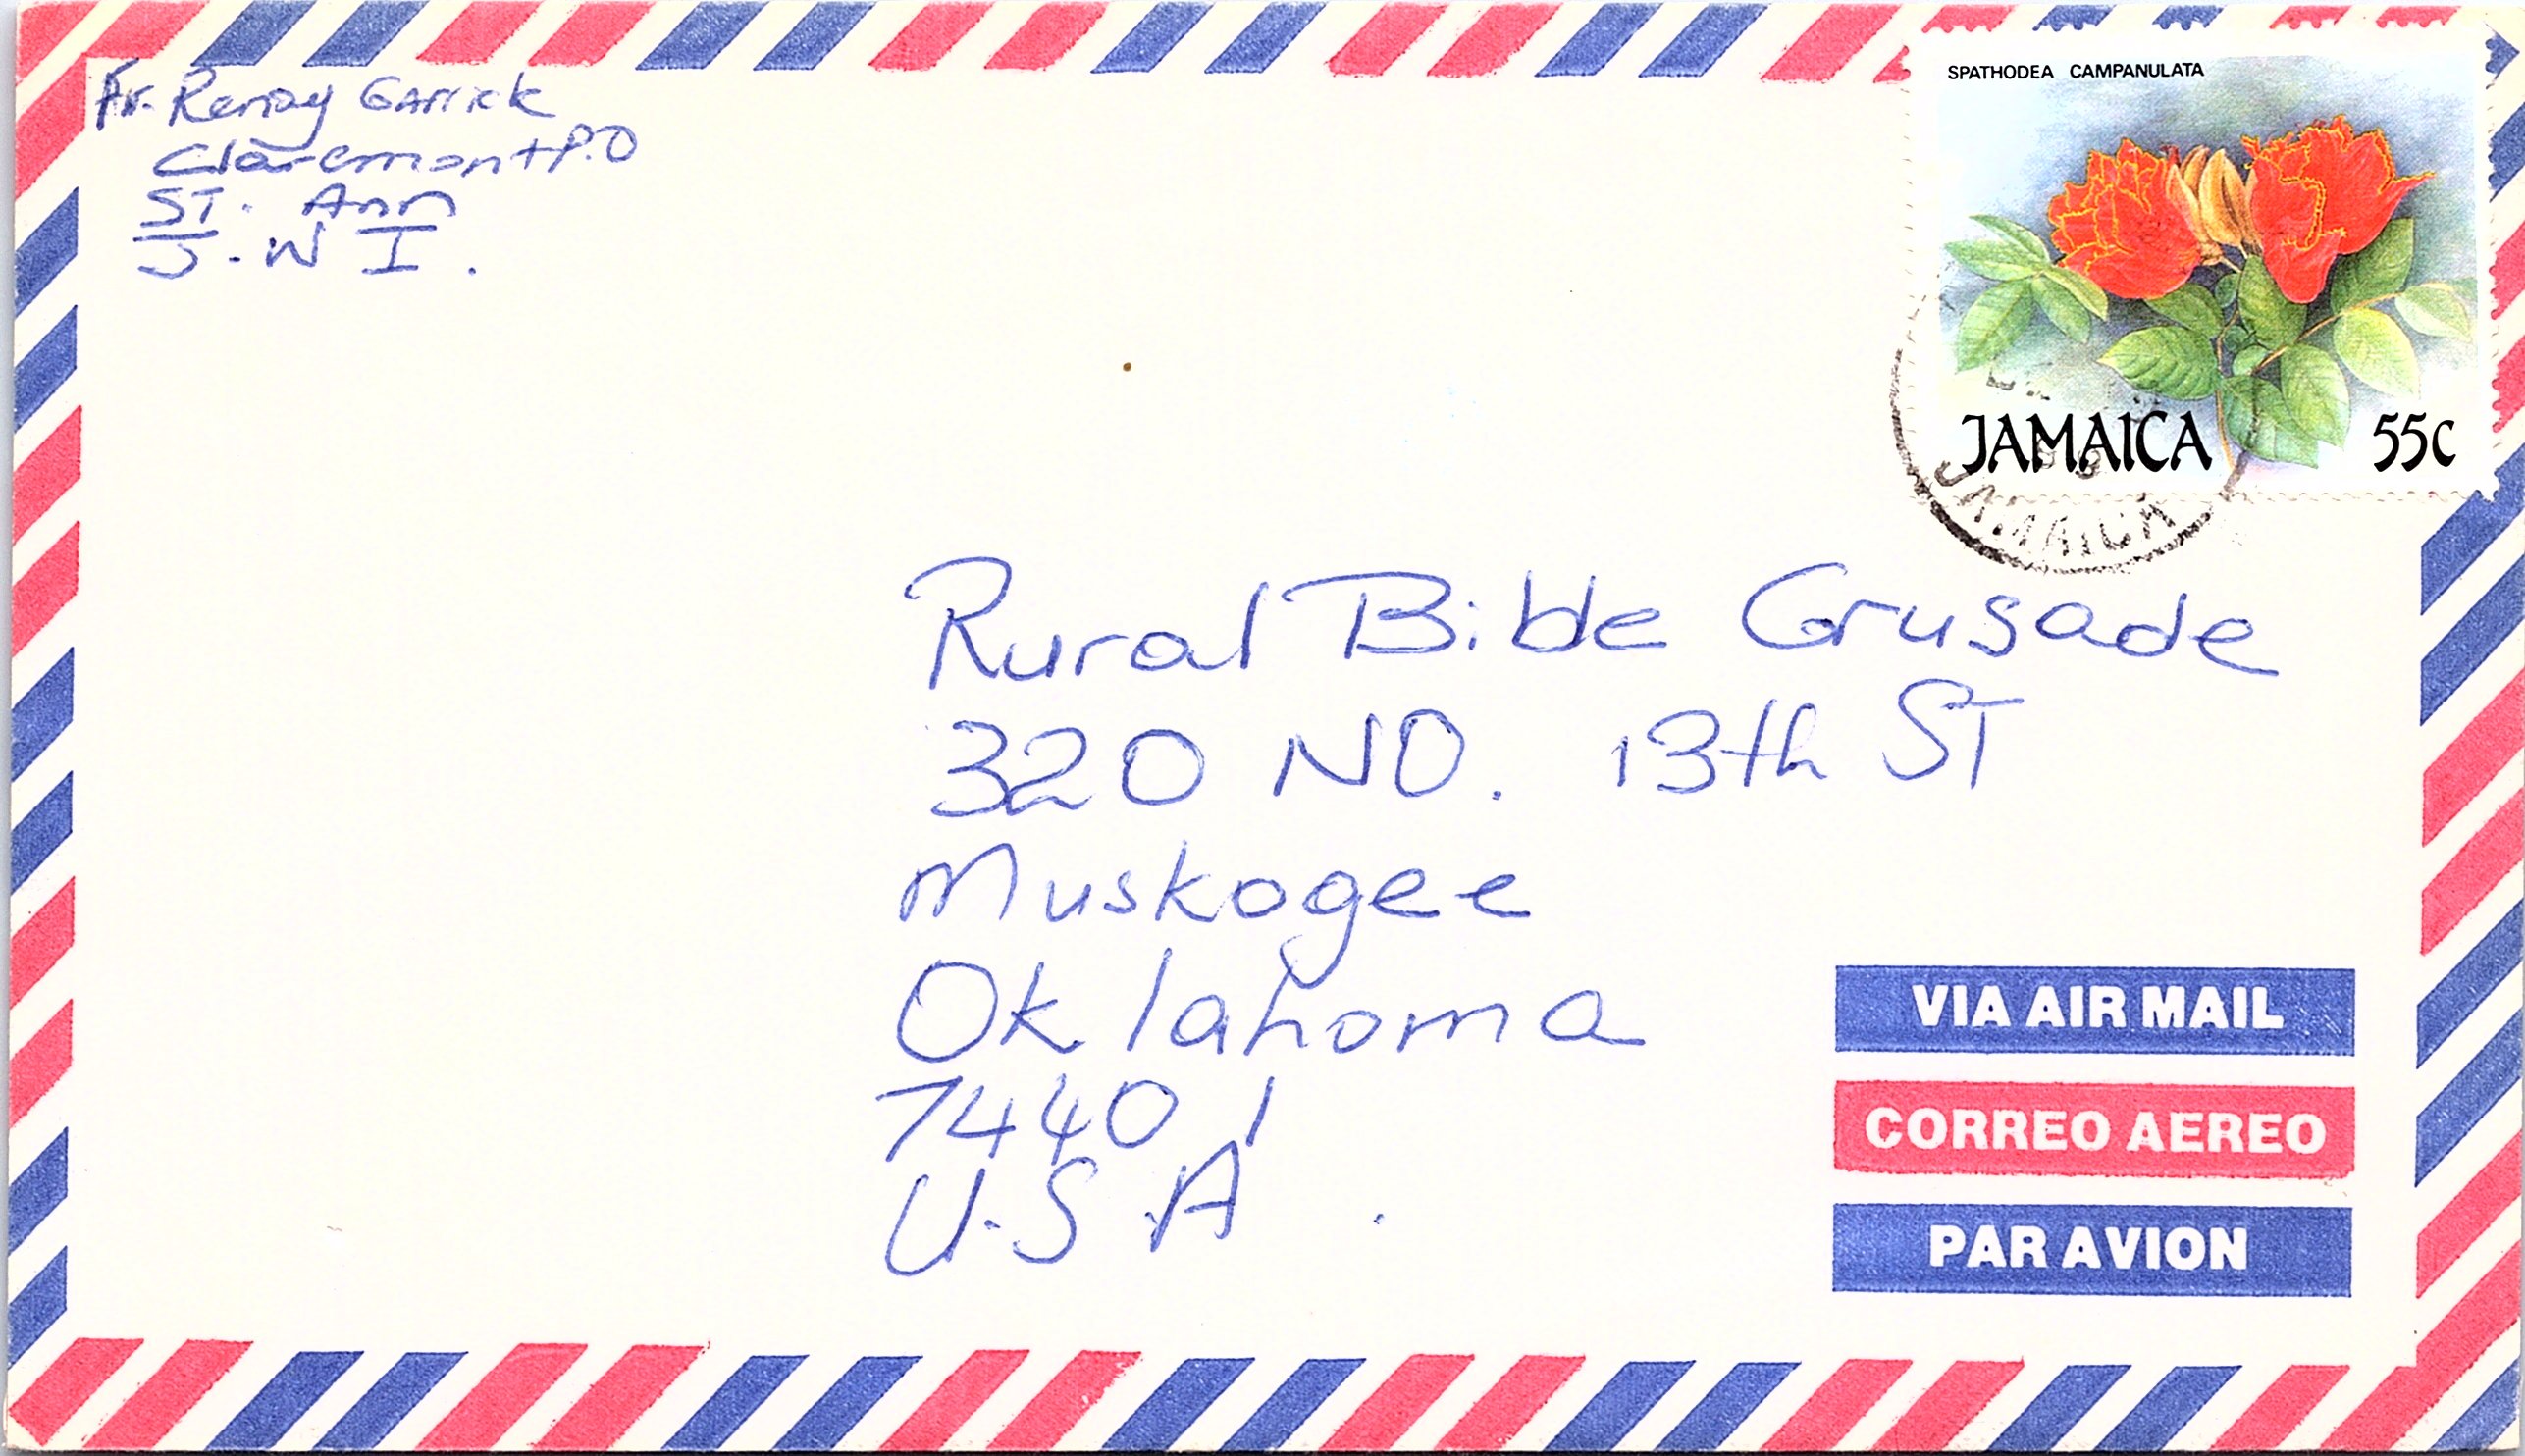 Fr. Renoy Garrick
Claremont P.O
ST. Ann
J. W I.
SPATHODEA CAMPANULATA
JAMAICA 55c
JAMAICA
Rural Bible Crusade
320 NO. 13th ST
Muskogee
Oklahoma
74401
U.S.A.
VIA AIR MAIL
CORREO AEREO
PAR AVION